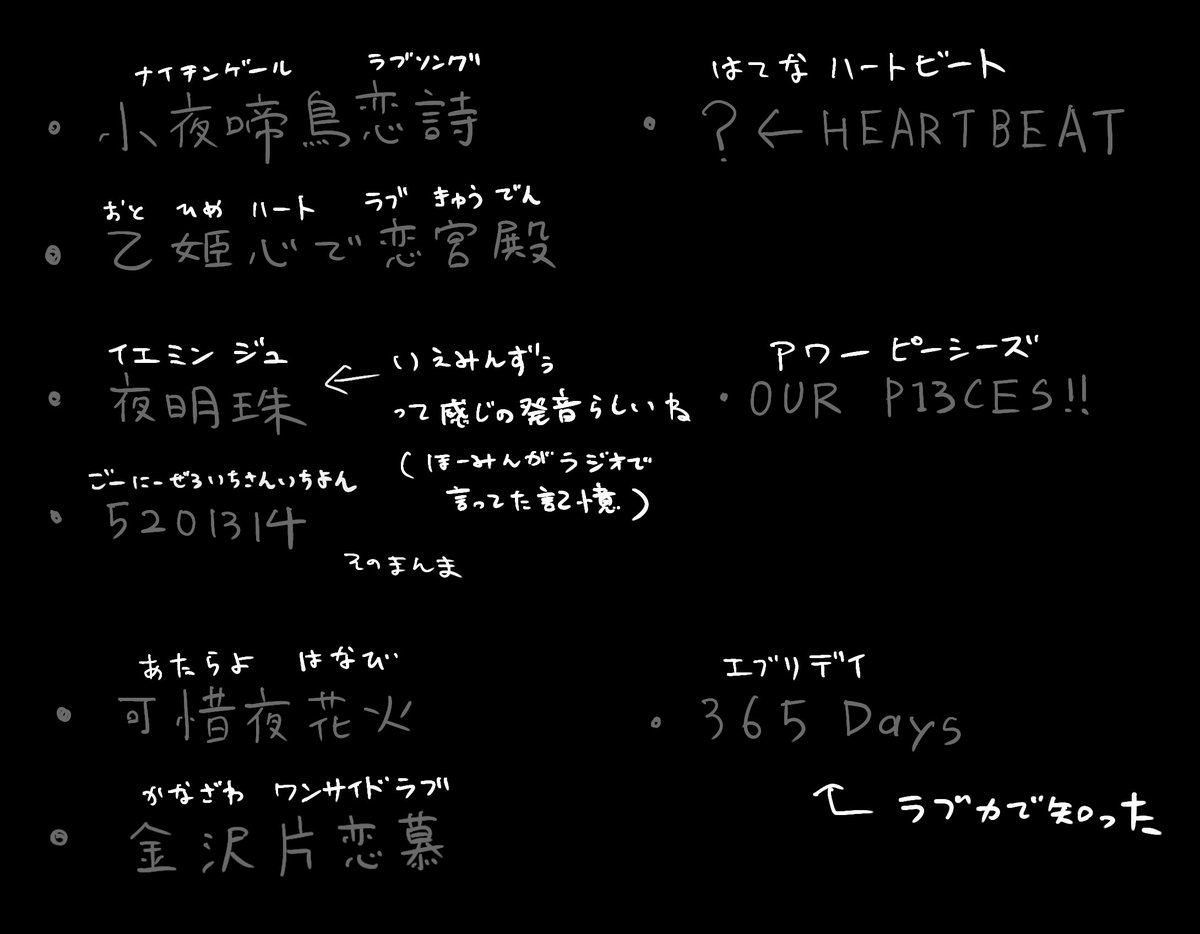 ナイチンゲール ラブソング
・小夜啼鳥恋詩
はてな ハートビート
・?←HEARTBEAT
おと ひめ ハート ラブ きゅうでん
・乙姫心で恋宮殿
イエミン ジュ
・夜明珠
← いえみんずぅ
って感じの発音らしいね
(ほーみんがラジオで
言ってた記憶)
アワー ピーシーズ
・OUR P13CES!!
ごーにーぜろいちさんいちよん
・5201314
そのまんま
あたらよ はなび
・可惜夜花火
エブリデイ
・365 Days
かなざわ ワンサイドラブ
・金沢片恋慕
← ラブカで知った